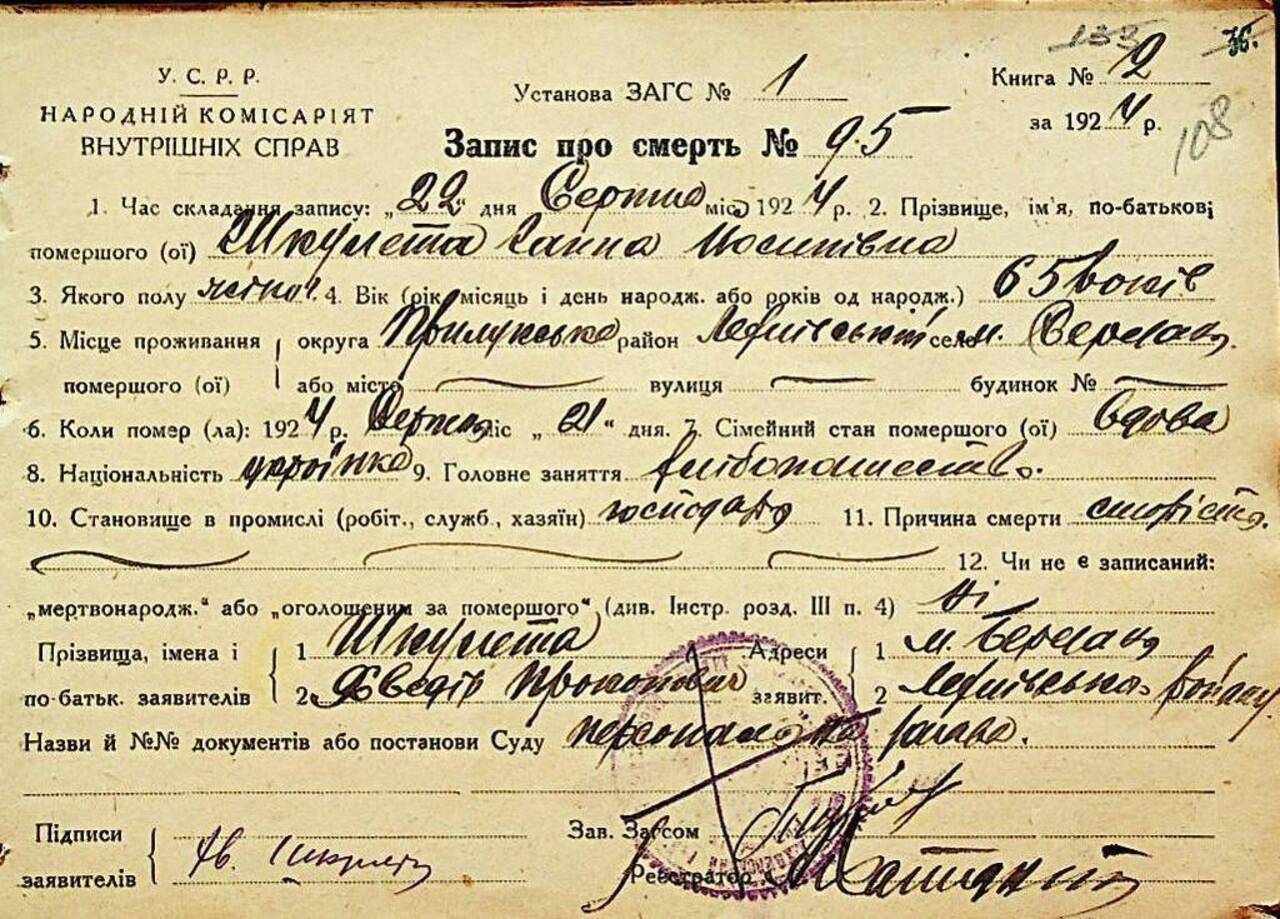 133 36.
У. С. Р. Р.
НАРОДНІЙ КОМІСАРІЯТ
ВНУТРІШНІХ СПРАВ
Установа ЗАГС № 1
Книга № 2
за 1924 р.
108
Запис про смерть № 95
1. Час складання запису: „22“ дня Серпня міс. 1924 р. 2. Прізвище, ім'я, по-батькові
помершого (ої) Шкулета Ганна Йосипівна
3. Якого полу жіноч. 4. Вік (рік, місяць і день народж. або років од народж.) 65 років
5. Місце проживання округа Прилуцька район село м.
помершого (ої) або місто вулиця будинок №
6. Коли помер (ла): 1924 р. Серпня міс „21“ дня. 7. Сімейний стан помершого (ої) Вдова
8. Національність українка 9. Головне заняття хлібопашество.
10. Становище в промислі (робіт., служб., хазяїн) господар 11. Причина смерти старість.
12. Чи не є записаний:
„мертвонародж.“ або „оголошеним за помершого“ (див. Інстр. розд. III п. 4) Ні
Прізвища, імена і 1 Шкулета Адреси 1 м.
по-батьк. заявителів 2 Хведір Прокопович заявит. 2
Назви й №№ документів або постанови Суду персональна заява.
Підписи
заявителів Хв. Шкулета
Зав. Загсом
Реєстратор